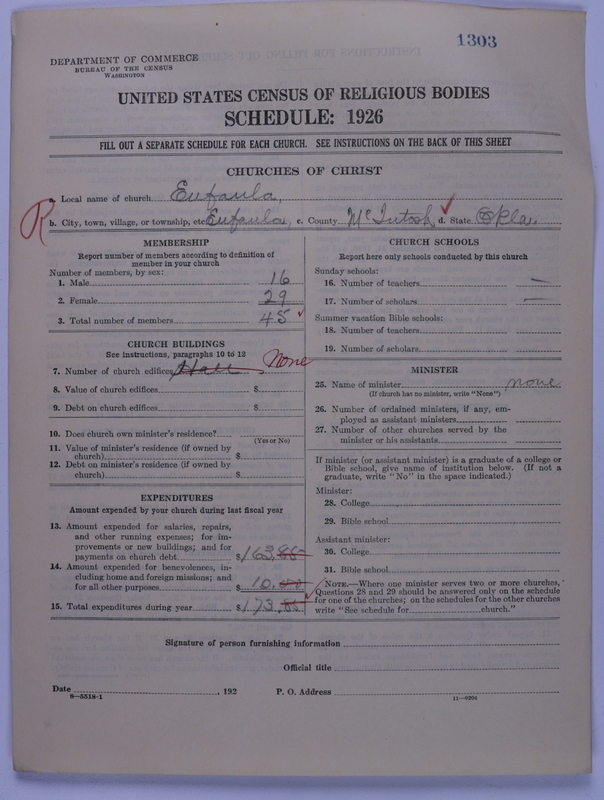 1303
DEPARTMENT OF COMMERCE
BUREAU OF THE CENSUS
WASHINGTON
UNITED STATES CENSUS OF RELIGIOUS BODIES
SCHEDULE: 1926
FILL OUT A SEPARATE SCHEDULE FOR EACH CHURCH. SEE INSTRUCTIONS ON THE BACK OF THIS SHEET
CHURCHES OF CHRIST
a. Local name of church Eufaula,
R
b. City, town, village, or township, etc. Eufaula, c. County McIntosh d. State Okla.
MEMBERSHIP
Report number of members according to definition of
member in your church
Number of members, by sex:
1. Male 16
2. Female 29
3. Total number of members 45
CHURCH BUILDINGS
See instructions, paragraphs 10 to 12
7. Number of church edifices Hall None
8. Value of church edifices $
9. Debt on church edifices $
10. Does church own minister's residence?
(Yes or No)
11. Value of minister's residence (if owned by
church) $
12. Debt on minister's residence (if owned by
church) $
EXPENDITURES
Amount expended by your church during last fiscal year
13. Amount expended for salaries, repairs,
and other running expenses; for im-
provements or new buildings; and for
payments on church debt $163.88
14. Amount expended for benevolences, in-
cluding home and foreign missions; and
for all other purposes $10.
15. Total expenditures during year $173.88
CHURCH SCHOOLS
Report here only schools conducted by this church
Sunday schools:
16. Number of teachers —
17. Number of scholars —
Summer vacation Bible schools:
18. Number of teachers
19. Number of scholars
MINISTER
25. Name of minister none
(If church has no minister, write "None")
26. Number of ordained ministers, if any, em-
ployed as assistant ministers
27. Number of other churches served by the
minister or his assistants
If minister (or assistant minister) is a graduate of a college or
Bible school, give name of institution below. (If not a
graduate, write "No" in the space indicated.)
Minister:
28. College
29. Bible school
Assistant minister:
30. College
31. Bible school
NOTE.—Where one minister serves two or more churches,
Questions 28 and 29 should be answered only on the schedule
for one of the churches; on the schedules for the other churches
write "See schedule for church."
Signature of person furnishing information
Official title
Date , 192 P. O. Address
8—5518-1 11—9204